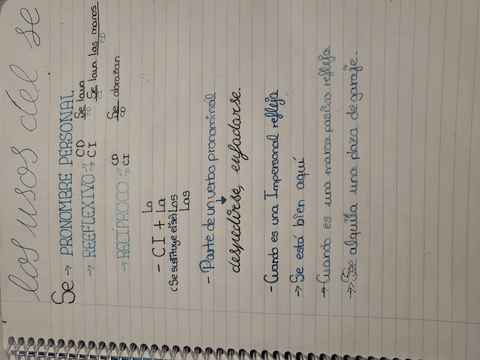 los usos del se
Se → PRONOMBRE PERSONAL
→ REEFLEXIVO → CD Se lava CD
CI Se lava las manos CI CD
→ RECÍPROCO → CD Se abrazan CD
CI
- CI + Lo La Los Las
(Se sustituye el
- Parte de un verbo pronominal
despedirse, enfadarse.
- Cuando es una Impersonal refleja
→ Se está bien aquí
→ Cuando es una marca pasiva refleja
→ Se alquila una plaza de garaje.